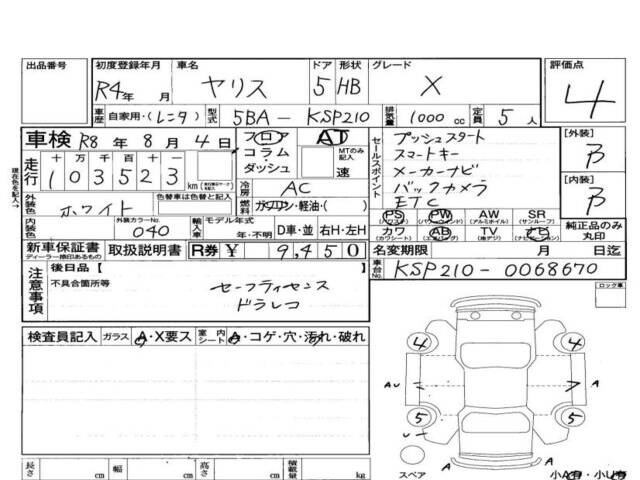 出品番号
初度登録年月 車名 ドア 形状 グレード 評価点
R4年 月 ヤリス 5 HB X 4
車歴 自家用・(レンタ) 型式 5BA - KSP210 排気量 1000 cc 定員 5 人
車検 R8 年 8 月 4 日 フロア コラム・ダッシュ AT MTのみ記入 速
走行 十 万 千 百 十 一
103523 km
冷房 AC
外装色 ホワイト 色替車は色替と記入 燃料 ガソリン・軽油・( )
現在色を記入→
内装色 外装カラーNo. 040 輸入車 モデル年式 年・不明 D車・並 右H・左H
セールスポイント
プッシュスタート
スマートキー
メーカーナビ
バックカメラ
ETC
[外装] B
[内装] B
PS PW AW SR
(パワステ) (パワーウインド) (アルミホイル) (サンルーフ)
カワ AB TV ナビ
(カワシート) (エアバッグ) (地デジ) (ナビゲーション)
純正品のみ丸印
新車保証書 取扱説明書 R券 ¥ 9,450 名変期限 月 日迄
ディーラー捺印あるもの
車台No. KSP210-0068670
注意事項 後日品【 】
不具合箇所等
セーフティセンス
ドラレコ
ロック車
検査員記入 ガラス A・X要ス 室内シート A・コゲ・穴・汚れ・破れ
4 4
A A
5 5
スペア A
長さ cm 幅 cm 高さ cm 積載量 kg
小A・小U